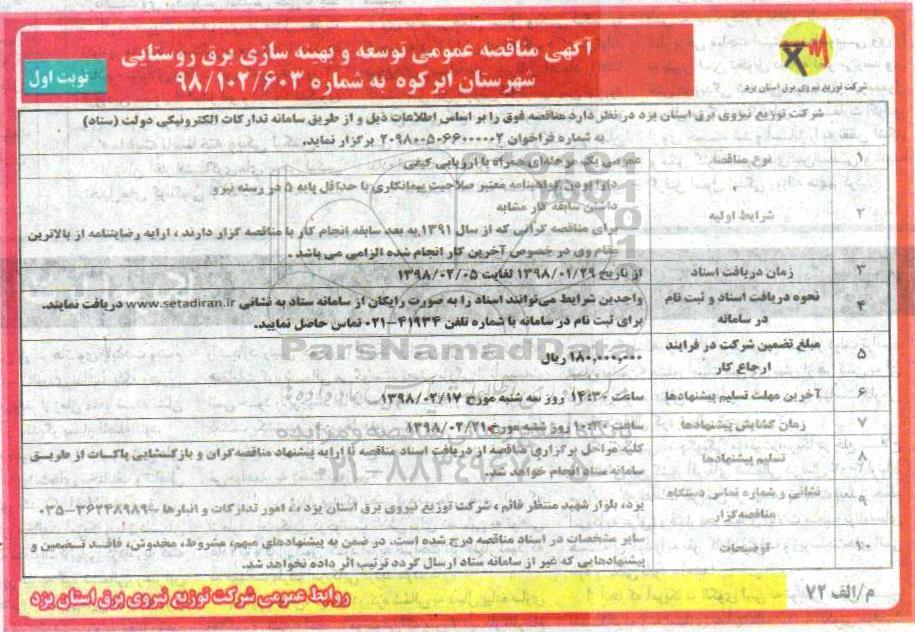 آگهی مناقصه عمومی توسعه و بهینه سازی برق روستایی
شهرستان ابرکوه به شماره ۹۸/۱۰۲/۶۰۳
نوبت اول
شرکت توزیع نیروی برق استان یزد
شرکت توزیع نیروی برق استان یزد در نظر دارد مناقصه فوق را بر اساس اطلاعات ذیل و از طریق سامانه تدارکات الکترونیکی دولت (ستاد)
به شماره فراخوان ۲۰۹۸۰۰۵۰۶۶۰۰۰۰۰۲ برگزار نماید.
۱ نوع مناقصه عمومی یک مرحله‌ای همراه با ارزیابی کیفی
۲ شرایط اولیه
دارا بودن گواهینامه معتبر صلاحیت پیمانکاری با حداقل پایه ۵ در رسته نیرو
داشتن سابقه کار مشابه
برای مناقصه گرانی که از سال ۱۳۹۱ به بعد سابقه انجام کار با مناقصه گزار دارند ، ارایه رضایتنامه از بالاترین
مقام وی در خصوص آخرین کار انجام شده الزامی می باشد .
۳ زمان دریافت اسناد از تاریخ ۱۳۹۸/۰۱/۲۹ لغایت ۱۳۹۸/۰۲/۰۵
۴ نحوه دریافت اسناد و ثبت نام
در سامانه
واجدین شرایط می‌توانند اسناد را به صورت رایگان از سامانه ستاد به نشانی www.setadiran.ir دریافت نمایند.
برای ثبت نام در سامانه با شماره تلفن ۴۱۹۳۴-۰۲۱ تماس حاصل نمایید.
۵ مبلغ تضمین شرکت در فرایند
ارجاع کار
۱۸۰,۰۰۰,۰۰۰ ریال
۶ آخرین مهلت تسلیم پیشنهادها ساعت ۱۴:۳۰ روز سه شنبه مورخ ۱۳۹۸/۰۲/۱۷
۷ زمان گشایش پیشنهادها ساعت ۱۰:۳۰ روز شنبه مورخ ۱۳۹۸/۰۲/۲۱
۸ تسلیم پیشنهادها
کلیه مراحل برگزاری مناقصه از دریافت اسناد مناقصه تا ارایه پیشنهاد مناقصه‌گران و بازگشایی پاکات از طریق
سامانه ستاد انجام خواهد شد.
۹ نشانی و شماره تماس دستگاه
مناقصه‌گزار
یزد، بلوار شهید منتظر قائم ، شرکت توزیع نیروی برق استان یزد ، امور تدارکات و انبارها -۳۶۲۴۸۹۸۹-۰۳۵
توضیحات
سایر مشخصات در اسناد مناقصه درج شده است. در ضمن به پیشنهادهای مبهم، مشروط، مخدوش، فاقد تضمین و
پیشنهادهایی که غیر از سامانه ستاد ارسال گردد ترتیب اثر داده نخواهد شد.
ParsNamadData
م/الف ۷۲
روابط عمومی شرکت توزیع نیروی برق استان یزد